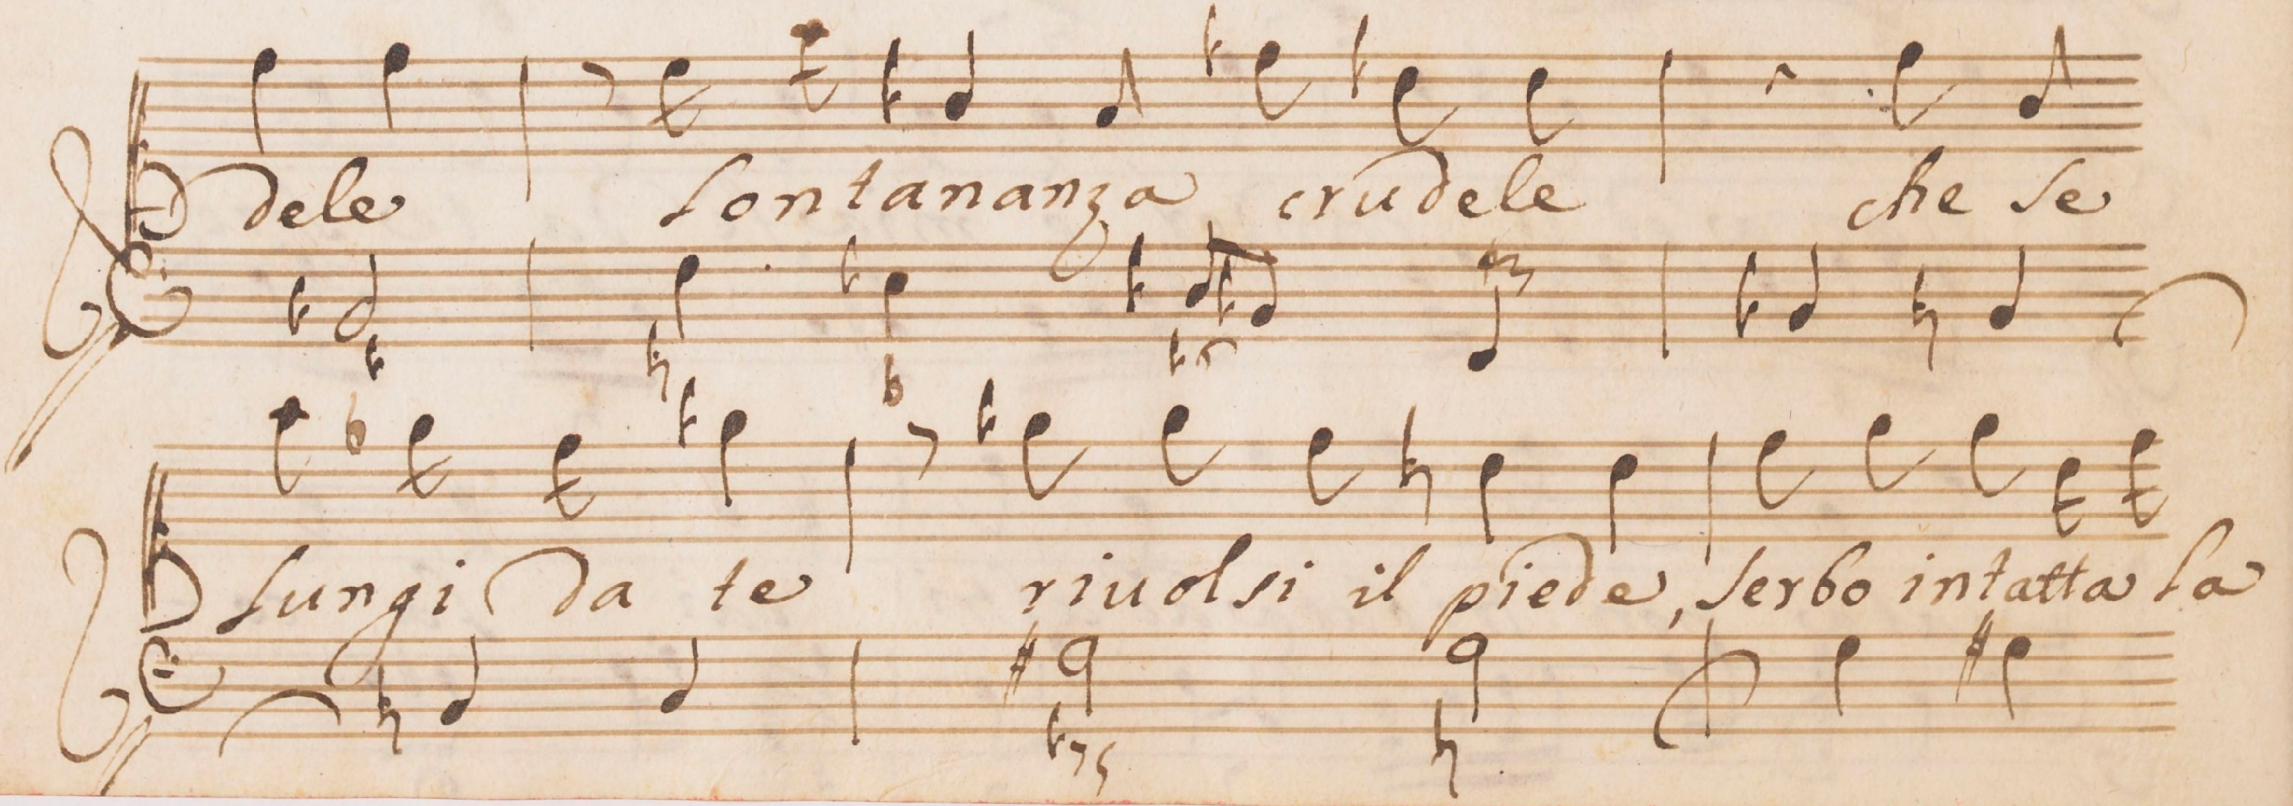 dele lontananza crudele che se
lungi da te riuolsi il piede, serbo intatta la